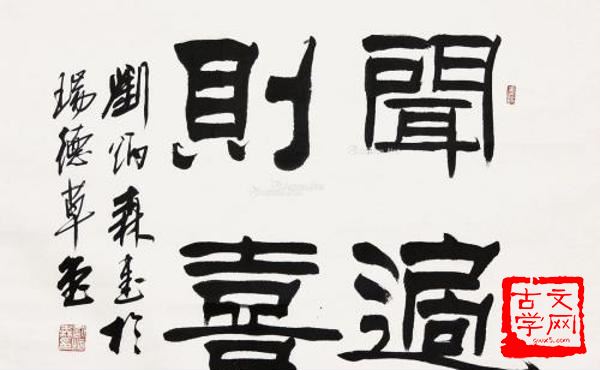 聞過
則喜
劉炳森書於
瑞德草堂
古文
学网
gwx5.com